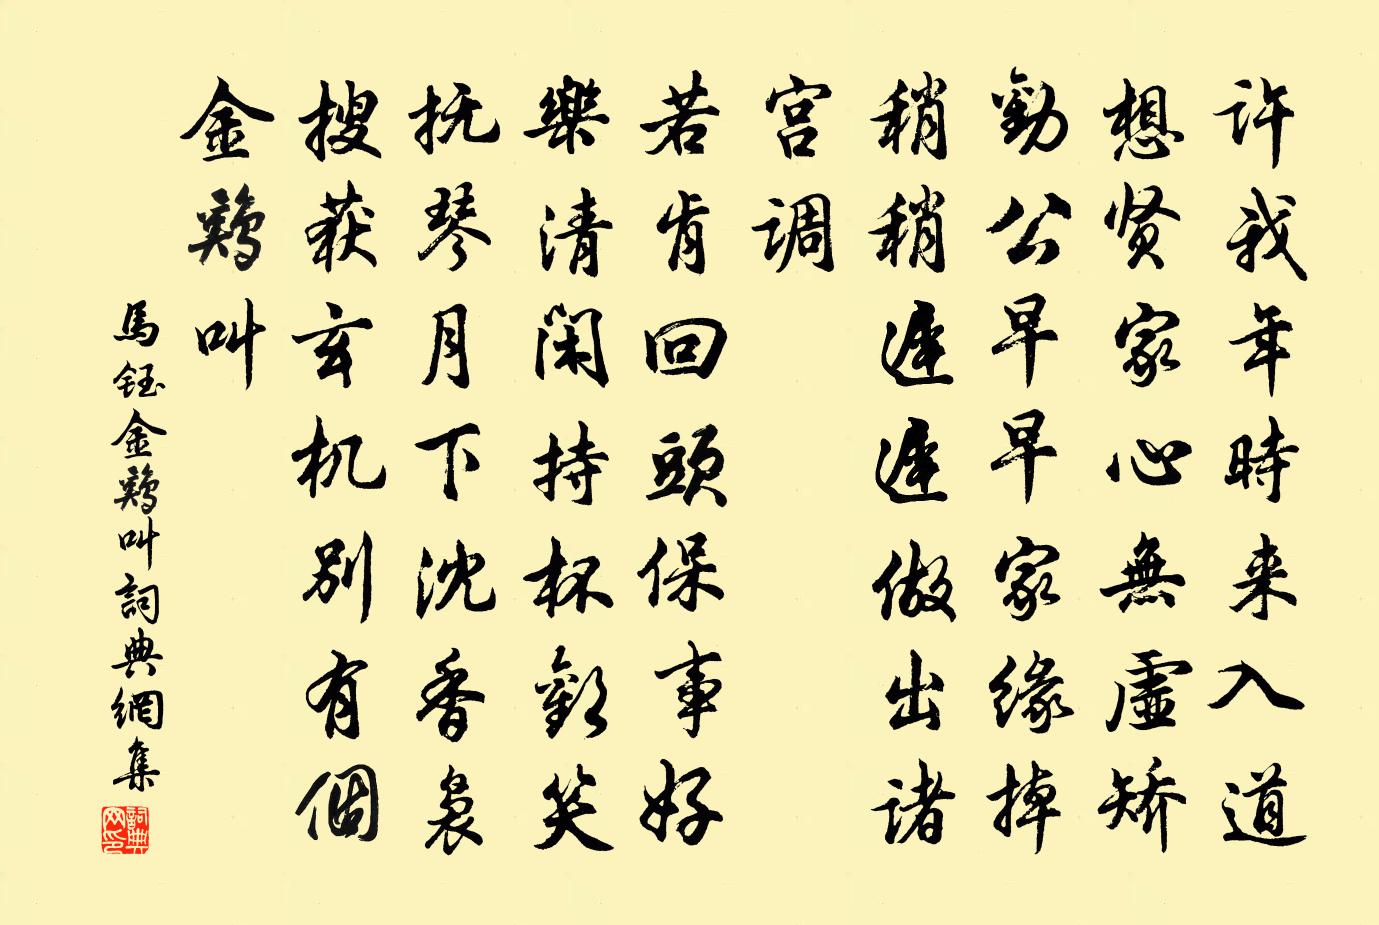 許我年時来入道
想贤家心無虛矫
勸公早早家缘掉
稍稍遲遲做出诸
宫调
若肯回頭保事好
樂清閑持杯歡笑
抚琴月下沈香袅
搜获玄机别有個
金鷄叫
馬鈺金鷄叫詞典網集
詞典
网印